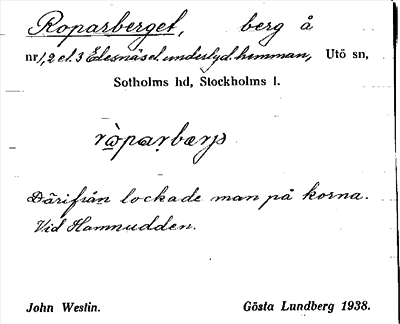 Roparberget, berg å
nr 1, 2 el. 3 Edesnäs el. underlyd. hemman, Utö sn,
Sotholms hd, Stockholms l.
Därifrån lockade man på korna.
Vid Hamnudden.
John Westin. Gösta Lundberg 1938.